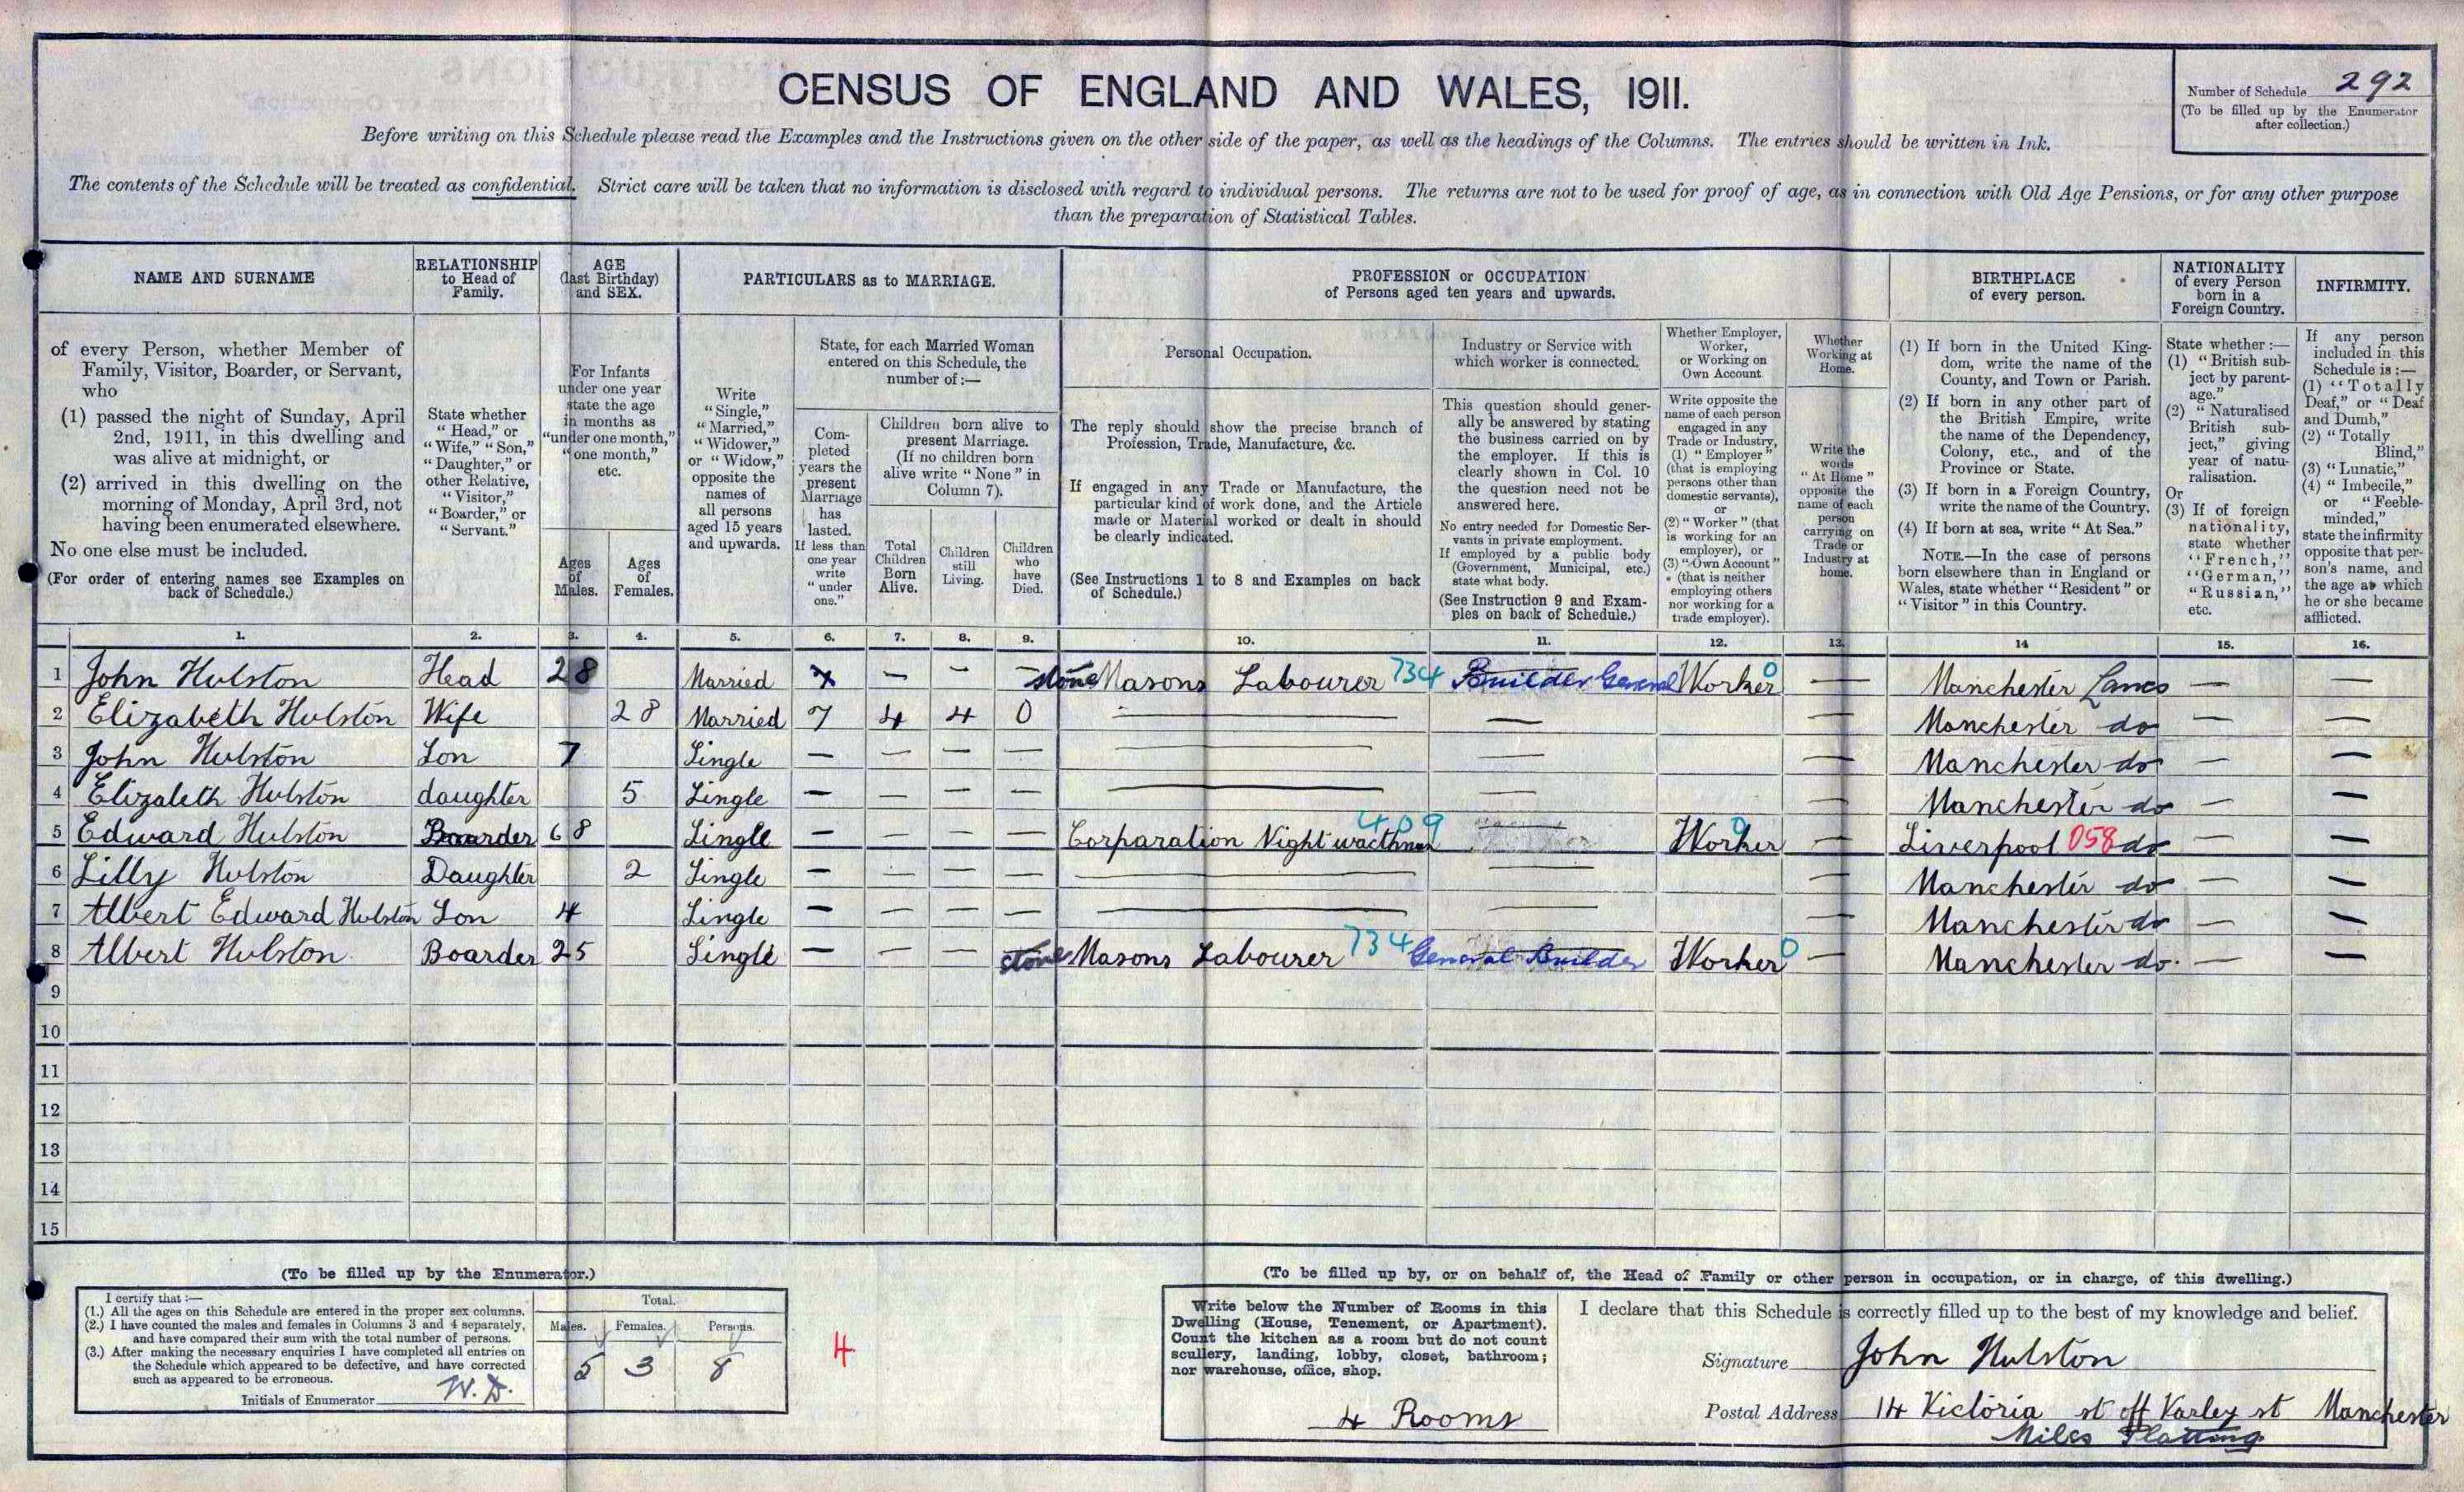 CENSUS OF ENGLAND AND WALES, 1911.
Number of Schedule 292
(To be filled up by the Enumerator
after collection.)
Before writing on this Schedule please read the Examples and the Instructions given on the other side of the paper, as well as the headings of the Columns. The entries should be written in Ink.
The contents of the Schedule will be treated as confidential. Strict care will be taken that no information is disclosed with regard to individual persons. The returns are not to be used for proof of age, as in connection with Old Age Pensions, or for any other purpose
than the preparation of Statistical Tables.
NAME AND SURNAME
of every Person, whether Member of
Family, Visitor, Boarder, or Servant,
who
(1) passed the night of Sunday, April
2nd, 1911, in this dwelling and
was alive at midnight, or
(2) arrived in this dwelling on the
morning of Monday, April 3rd, not
having been enumerated elsewhere.
No one else must be included.
(For order of entering names see Examples on
back of Schedule.)
RELATIONSHIP
to Head of
Family.
State whether
"Head," or
"Wife," "Son,"
"Daughter," or
other Relative,
"Visitor,"
"Boarder," or
"Servant."
AGE
(last Birthday)
and SEX.
For Infants
under one year
state the age
in months as
"under one month,"
"one month,"
etc.
Ages
of
Males.
Ages
of
Females.
PARTICULARS as to MARRIAGE.
Write
"Single,"
"Married,"
"Widower,"
or "Widow,"
opposite the
names of
all persons
aged 15 years
and upwards.
State, for each Married Woman
entered on this Schedule, the
number of:—
Com-
pleted
years the
present
Marriage
has
lasted.
If less than
one year
write
"under
one."
Children born alive to
present Marriage.
(If no children born
alive write "None" in
Column 7).
Total
Children
Born
Alive.
Children
still
Living.
Children
who
have
Died.
PROFESSION or OCCUPATION
of Persons aged ten years and upwards.
Personal Occupation.
The reply should show the precise branch of
Profession, Trade, Manufacture, &c.
If engaged in any Trade or Manufacture, the
particular kind of work done, and the Article
made or Material worked or dealt in should
be clearly indicated.
(See Instructions 1 to 8 and Examples on back
of Schedule.)
Industry or Service with
which worker is connected.
This question should gener-
ally be answered by stating
the business carried on by
the employer. If this is
clearly shown in Col. 10
the question need not be
answered here.
No entry needed for Domestic Ser-
vants in private employment.
If employed by a public body
(Government, Municipal, etc.)
state what body.
(See Instruction 9 and Exam-
ples on back of Schedule.)
Whether Employer,
Worker,
or Working on
Own Account
Write opposite the
name of each person
engaged in any
Trade or Industry,
(1) "Employer"
(that is employing
persons other than
domestic servants),
or
(2) "Worker" (that
is working for an
employer), or
(3) "Own Account"
(that is neither
employing others
nor working for a
trade employer).
Whether
Working at
Home.
Write the
words
"At Home"
opposite the
name of each
person
carrying on
Trade or
Industry at
home.
BIRTHPLACE
of every person.
(1) If born in the United King-
dom, write the name of the
County, and Town or Parish.
(2) If born in any other part of
the British Empire, write
the name of the Dependency,
Colony, etc., and of the
Province or State.
(3) If born in a Foreign Country,
write the name of the Country.
(4) If born at sea, write "At Sea."
NOTE.—In the case of persons
born elsewhere than in England or
Wales, state whether "Resident" or
"Visitor" in this Country.
NATIONALITY
of every Person
born in a
Foreign Country.
State whether:—
(1) "British sub-
ject by parent-
age."
(2) "Naturalised
British sub-
ject," giving
year of natu-
ralisation.
Or
(3) If of foreign
nationality,
state whether
"French,"
"German,"
"Russian,"
etc.
INFIRMITY.
If any person
included in this
Schedule is:—
(1) "Totally
Deaf," or "Deaf
and Dumb,"
(2) "Totally
Blind,"
(3) "Lunatic,"
(4) "Imbecile,"
or "Feeble-
minded,"
state the infirmity
opposite that per-
son's name, and
the age at which
he or she became
afflicted.
1. 2. 3. 4. 5. 6. 7. 8. 9. 10. 11. 12. 13. 14 15. 16.
1 John Hulston Head 28 Married — — — stone Masons Labourer 734 Builder General Worker 0 — Manchester Lancs — —
2 Elizabeth Hulston Wife 28 Married 7 4 4 0 — — — Manchester do — —
3 John Hulston Son 7 Single — — — — — — — Manchester do — —
4 Elizabeth Hulston daughter 5 Single — — — — — — — Manchester do — —
5 Edward Hulston Boarder 68 Single — — — — Corparation Night wacthman 409 Worker 0 — Liverpool 058 do — —
6 Lilly Hulston Daughter 2 Single — — — — — — — Manchester do — —
7 Albert Edward Hulston Son 4 Single — — — — — — — Manchester do — —
8 Albert Hulston Boarder 25 Single — — — stone Masons Labourer 734 General Builder Worker 0 — Manchester do. — —
9
10
11
12
13
14
15
(To be filled up by the Enumerator.)
I certify that:—
(1.) All the ages on this Schedule are entered in the proper sex columns.
(2.) I have counted the males and females in Columns 3 and 4 separately,
and have compared their sum with the total number of persons.
(3.) After making the necessary enquiries I have completed all entries on
the Schedule which appeared to be defective, and have corrected
such as appeared to be erroneous.
Initials of Enumerator W. D.
Total.
Males. Females. Persons.
5 3 8
4
(To be filled up by, or on behalf of, the Head of Family or other person in occupation, or in charge, of this dwelling.)
Write below the Number of Rooms in this
Dwelling (House, Tenement, or Apartment).
Count the kitchen as a room but do not count
scullery, landing, lobby, closet, bathroom;
nor warehouse, office, shop.
4 Rooms
I declare that this Schedule is correctly filled up to the best of my knowledge and belief.
Signature John Hulston
Postal Address 14 Victoria st off Varley st Manchester
Miles Platting